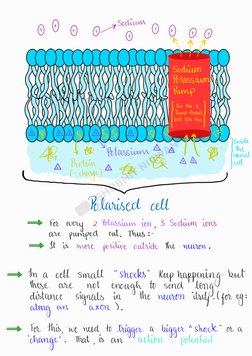 Sodium
Sodium
Potassium
Pump
Potassium
Protein
(- charge)
Inside
the
neural
cell
Polarised cell
→ For every 2 Potassium ion, 3 Sodium ions
are pumped out. Thus :-
→ It is more positive outside the neuron.
→ In a cell small "shocks" keep happening but
these are not enough to send long
distance signals in the neuron itself. (for eg:
along an axon).
→ For this, we need to trigger a bigger "shock" or a
'change'. That, is an action potential